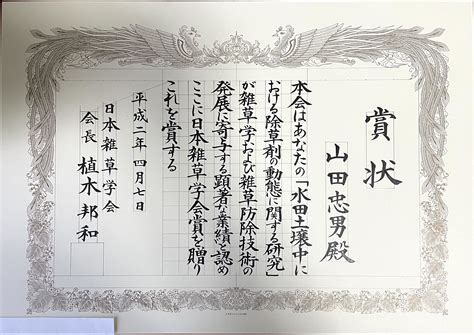 賞状
山田忠男殿
本会はあなたの「水田土壌中に
おける除草剤の動態に関する研究」
が雑草学および雑草防除技術の
発展に寄与する顕著な業績と認め
ここに日本雑草学会賞を贈り
これを賞する
平成二年四月七日
日本雑草学会
会長 植木邦和